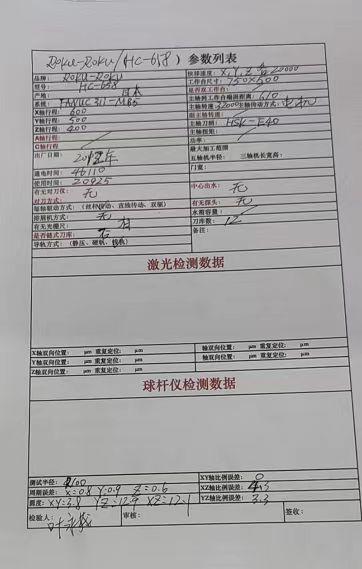 Roku-Roku/HC-658）参数列表
品牌： ROKU-ROKU 快移速度：X,Y,Z各20000
型号： HC-658 工作台尺寸：750×500
产地： 日本 是否双工作台：
系统： FANUC 311-MB5 主轴到工作台端面距离：610
X轴行程： 600 主轴转速：32000 主轴传动方式：
Y轴行程： 500 副主轴转速：
Z轴行程： 400 主轴刀柄：HSK-E40
A轴行程： 主轴扭矩：
C轴行程 功率：
出厂日期： 最大加工范围
五轴机半径： 三轴机长宽高：
通电时间： 46110 门宽：
使用时间： 20925
有无对刀仪： 无 中心出水： 无
对刀方式： 无 有无探头： 无
每轴驱动方式：（丝杆传动、直线传动、双驱） 水箱容量：
排屑机方式： 无 刀库数： 12
有无光栅尺： 有 备注：
是否链式刀库： 否
导轨方式：（静压、硬轨、线轨）
激光检测数据
X轴双向位置： μm 重复定位： μm 轴双向位置： μm 重复定位： μm
Y轴双向位置： μm 重复定位： μm 轴双向位置： μm 重复定位： μm
Z轴双向位置： μm 重复定位： μm
球杆仪检测数据
测试半径： 100 XY轴比例误差： 0
周期误差： X=0.8 Y=0.9 Z=0.6 XZ轴比例误差：
圆度：XY=3.8 YZ=12.9 XZ=12.1 YZ轴比例误差： 3.3
检验人： 审核： 签收：